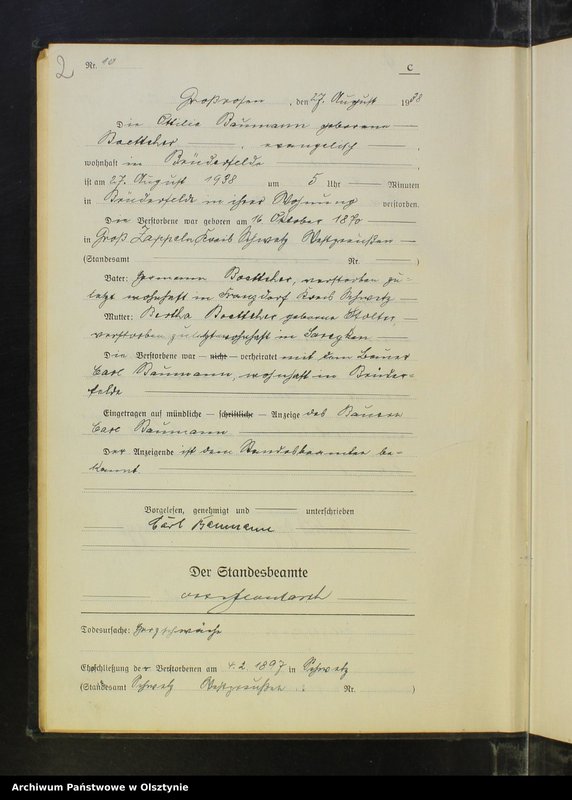 2
Nr. 10
C
Großrosen, den 27. August 1938
Die Ottilie Baumann geborene
Boettcher, evangelisch,
wohnhaft in Brüderfelde
ist am 27. August 1938 um 5 Uhr Minuten
in Brüderfelde in ihrer Wohnung verstorben.
Die Verstorbene war geboren am 16 Oktober 1870
in Groß Zappeln Kreis Schwetz Westpreußen
(Standesamt Nr. )
Vater: Hermann Boettcher, verstorben zu-
letzt wohnhaft in Kreis Schwetz
Mutter: Bertha Boettcher geborene
verstorben zuletzt wohnhaft in
Die Verstorbene war — nicht — verheiratet mit dem Bauer
Carl Baumann, wohnhaft in Brüder-
felde
Eingetragen auf mündliche — schriftliche — Anzeige des Bauern
Carl Baumann
Der Anzeigende ist dem Standesbeamten be-
kannt.
Vorgelesen, genehmigt und unterschrieben
Carl Baumann
Der Standesbeamte
Todesursache: Herzschwäche
Eheschließung der Verstorbenen am 4.2.1897 in Schwetz
(Standesamt Schwetz Westpreußen : Nr. )
Archiwum Państwowe w Olsztynie